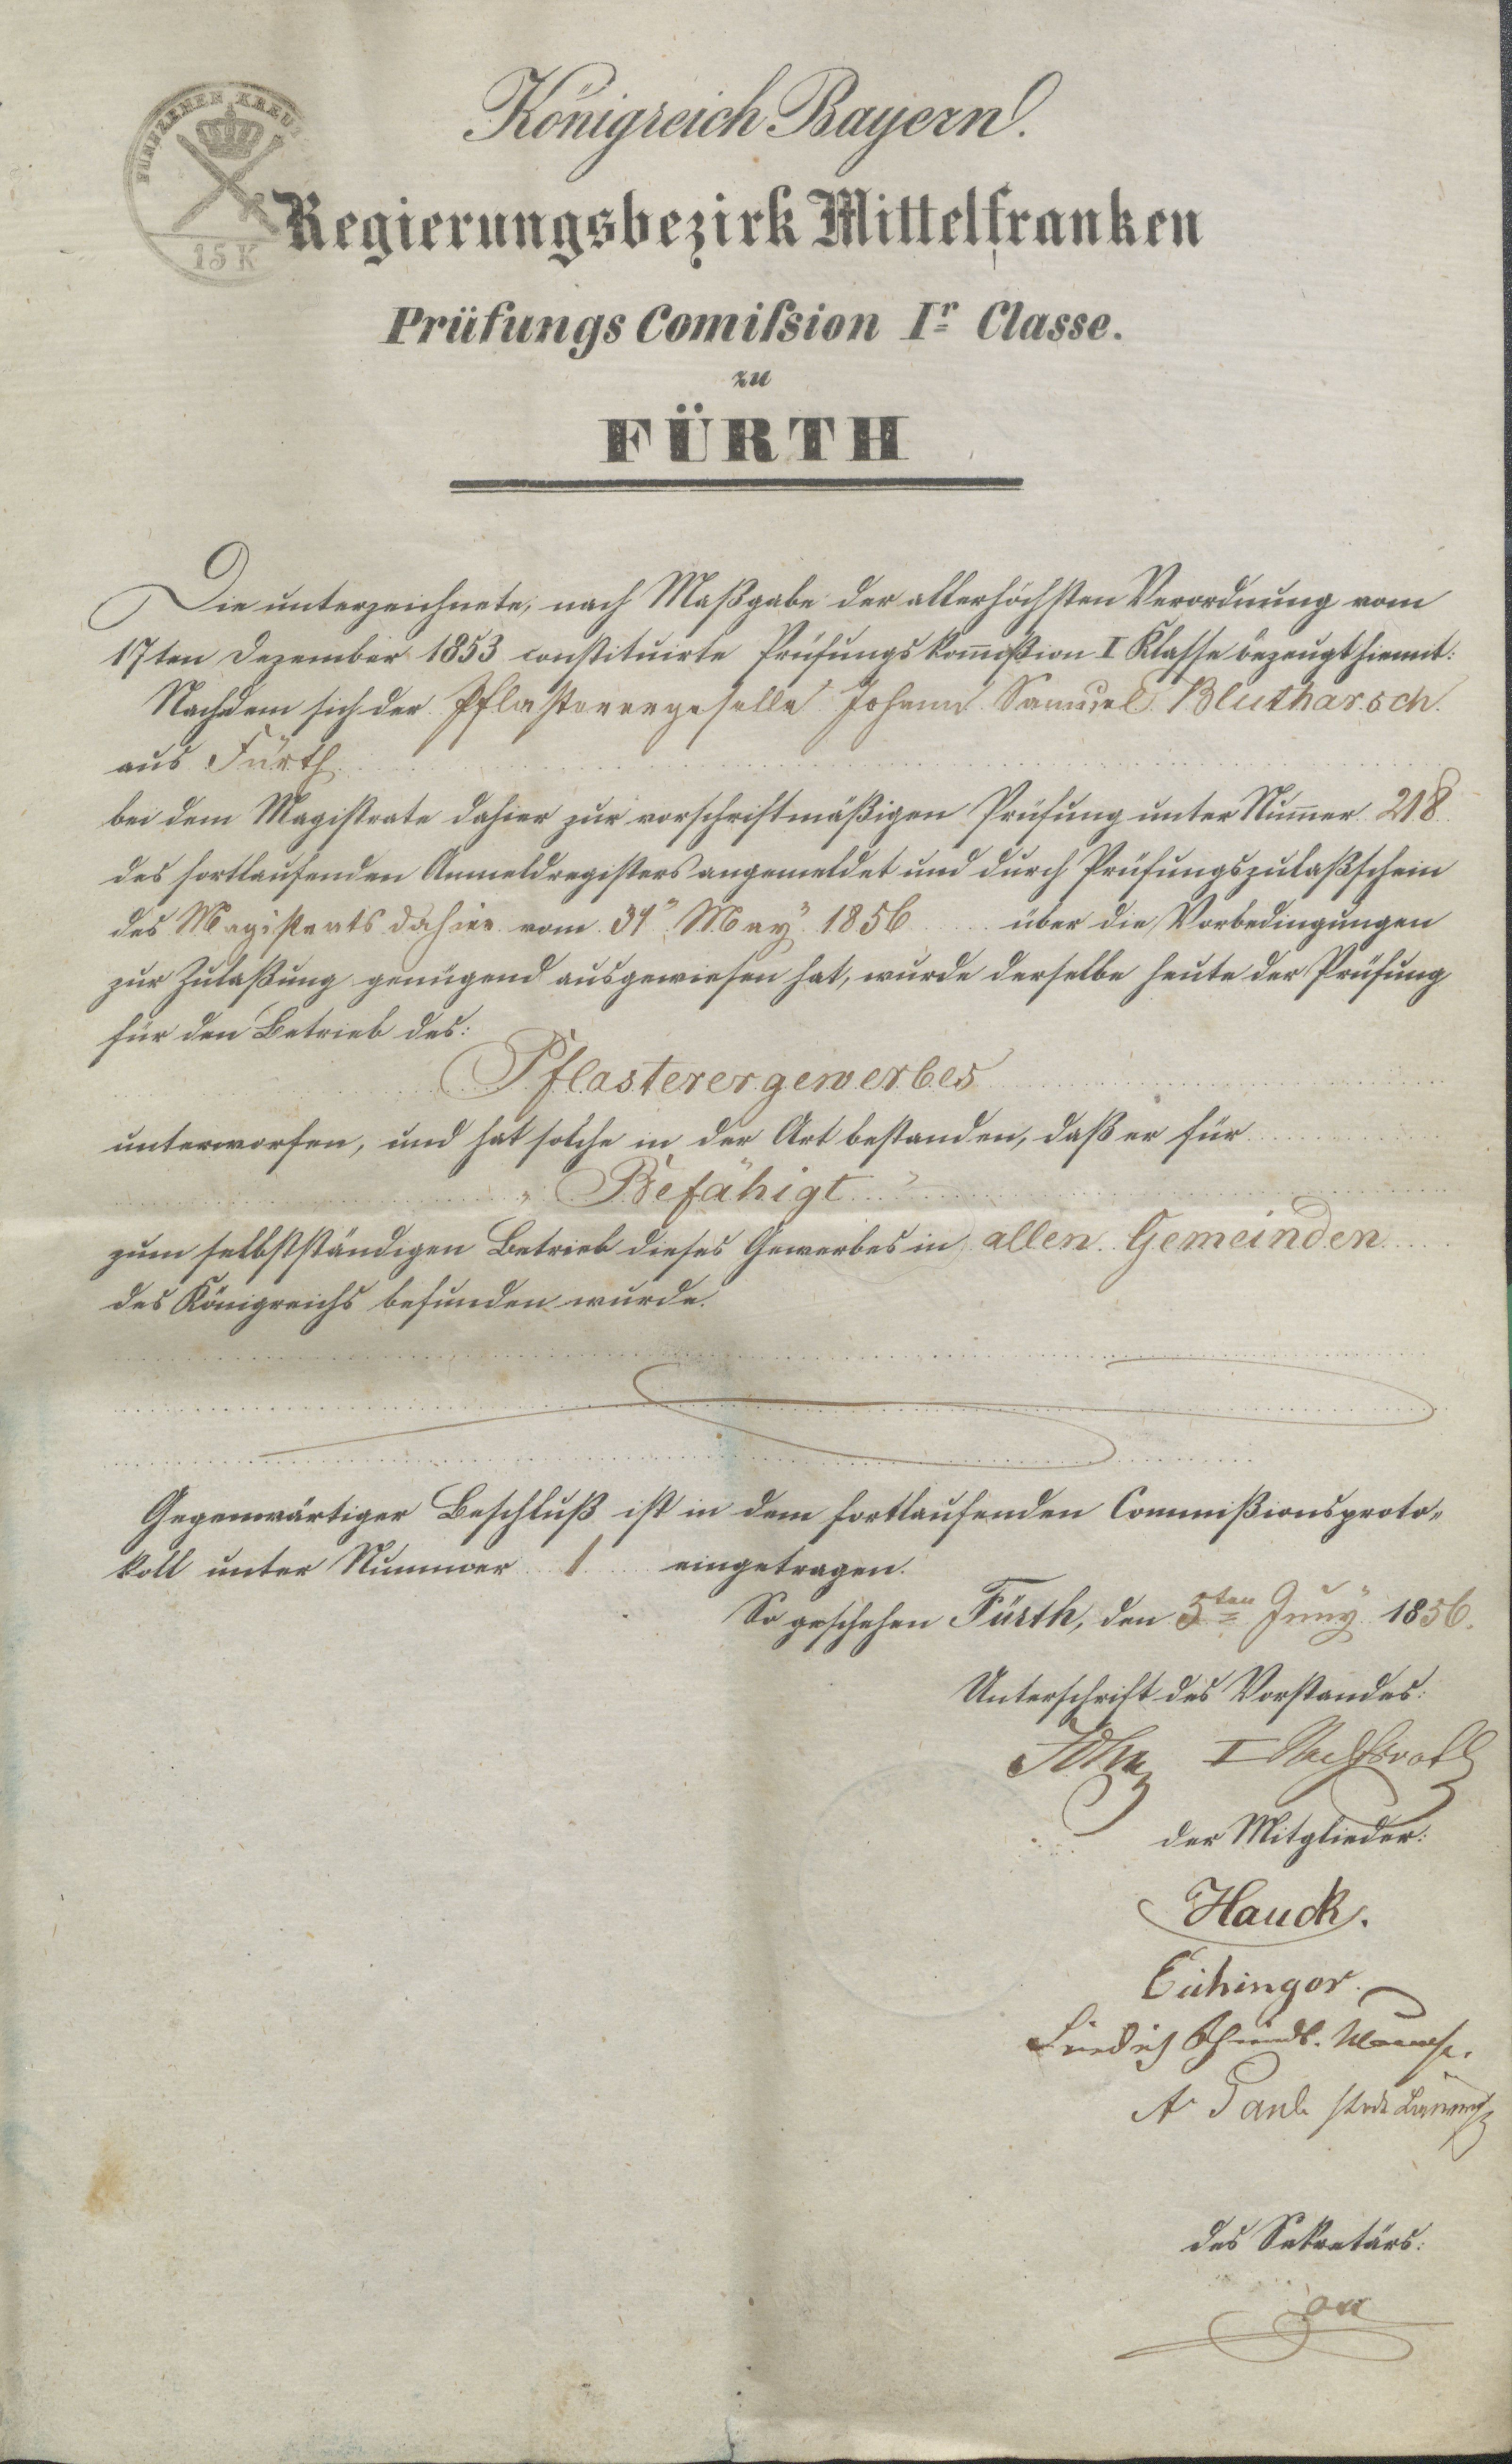 FÜNFZEHEN KREUZ
15 K
Königreich Bayern.
Regierungsbezirk Mittelfranken
Prüfungs Comiſsion Ir Classe.
zu
FÜRTH
Die unterzeichnete, nach Maßgabe der allerhöchsten Verordnung vom
17ten Dezember 1853 constituirte Prüfungskom̅ißion I Klasse bezeugt hiemit:
Nachdem sich der Pflasterergeselle Johann Samuel Blutharsch
aus Fürth
bei dem Magistrate dahier zur vorschriftmäßigen Prüfung unter Num̅er 218
des fortlaufenden Anmeldregisters angemeldet und durch Prüfungszulaßschein
des Magistrats dahier vom 31" May" 1856 über die Vorbedingungen
zur Zulaßung genügend ausgewiesen hat, wurde derselbe heute der Prüfung
für den Betrieb des:
Pflasterergewerbes
unterworfen, und hat solche in der Art bestanden, daß er für
"Befähigt"
zum selbstständigen Betrieb dieses Gewerbes in allen Gemeinden
des Königreichs befunden wurde.
Gegenwärtiger Beschluß ist in dem fortlaufenden Commißionsproto-
koll unter Nummer 1 eingetragen.
So geschehen Fürth, den 5ten Juny 1856.
Unterschrift des Vorstandes:
I Rechtsrath
der Mitglieder:
Hauck.
Eichinger.
Friedrich
A.
des Sekretärs: